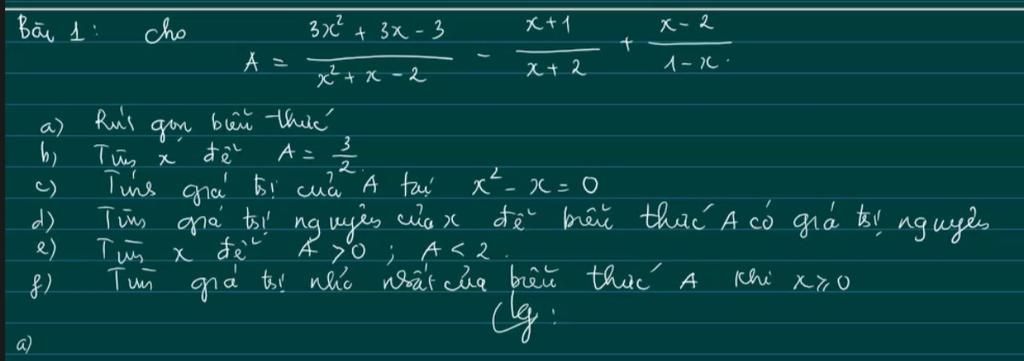 Bài 1: cho A = \frac{3x² + 3x - 3}{x² + x - 2} - \frac{x+1}{x+2} + \frac{x-2}{1-x}.
a) Rút gọn biểu thức
b) Tìm x để A = \frac{3}{2}.
c) Tính giá trị của A tại x² - x = 0
d) Tìm giá trị nguyên của x để biểu thức A có giá trị nguyên
e) Tìm x để A > 0 ; A < 2.
f) Tìm giá trị nhỏ nhất của biểu thức A khi x ⩾ 0
Lg:
a)